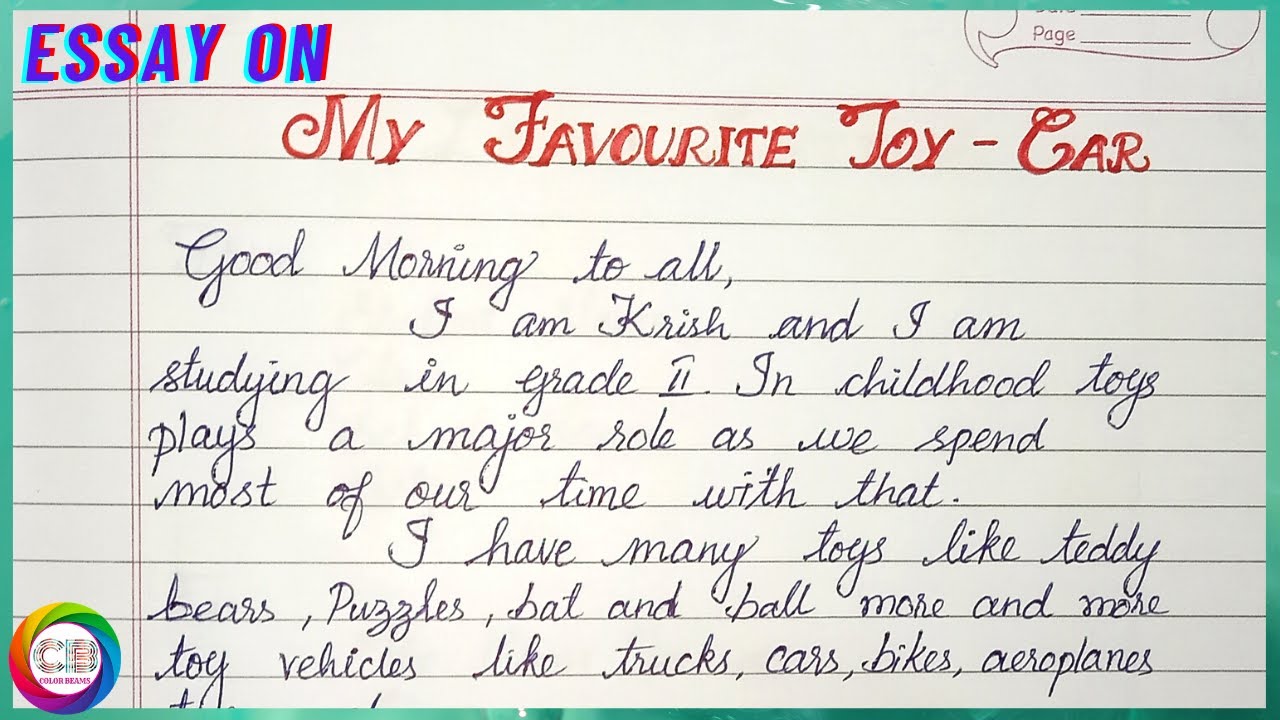 ESSAY ON
Page
My Favourite Toy - Car
Good Morning to all,
I am Krish and I am
studying in grade II. In childhood toys
plays a major role as we spend
most of our time with that.
I have many toys like teddy
bears, Puzzles, bat and ball more and more
toy vehicles like trucks, cars, bikes, aeroplanes
CB
COLOR BEAMS